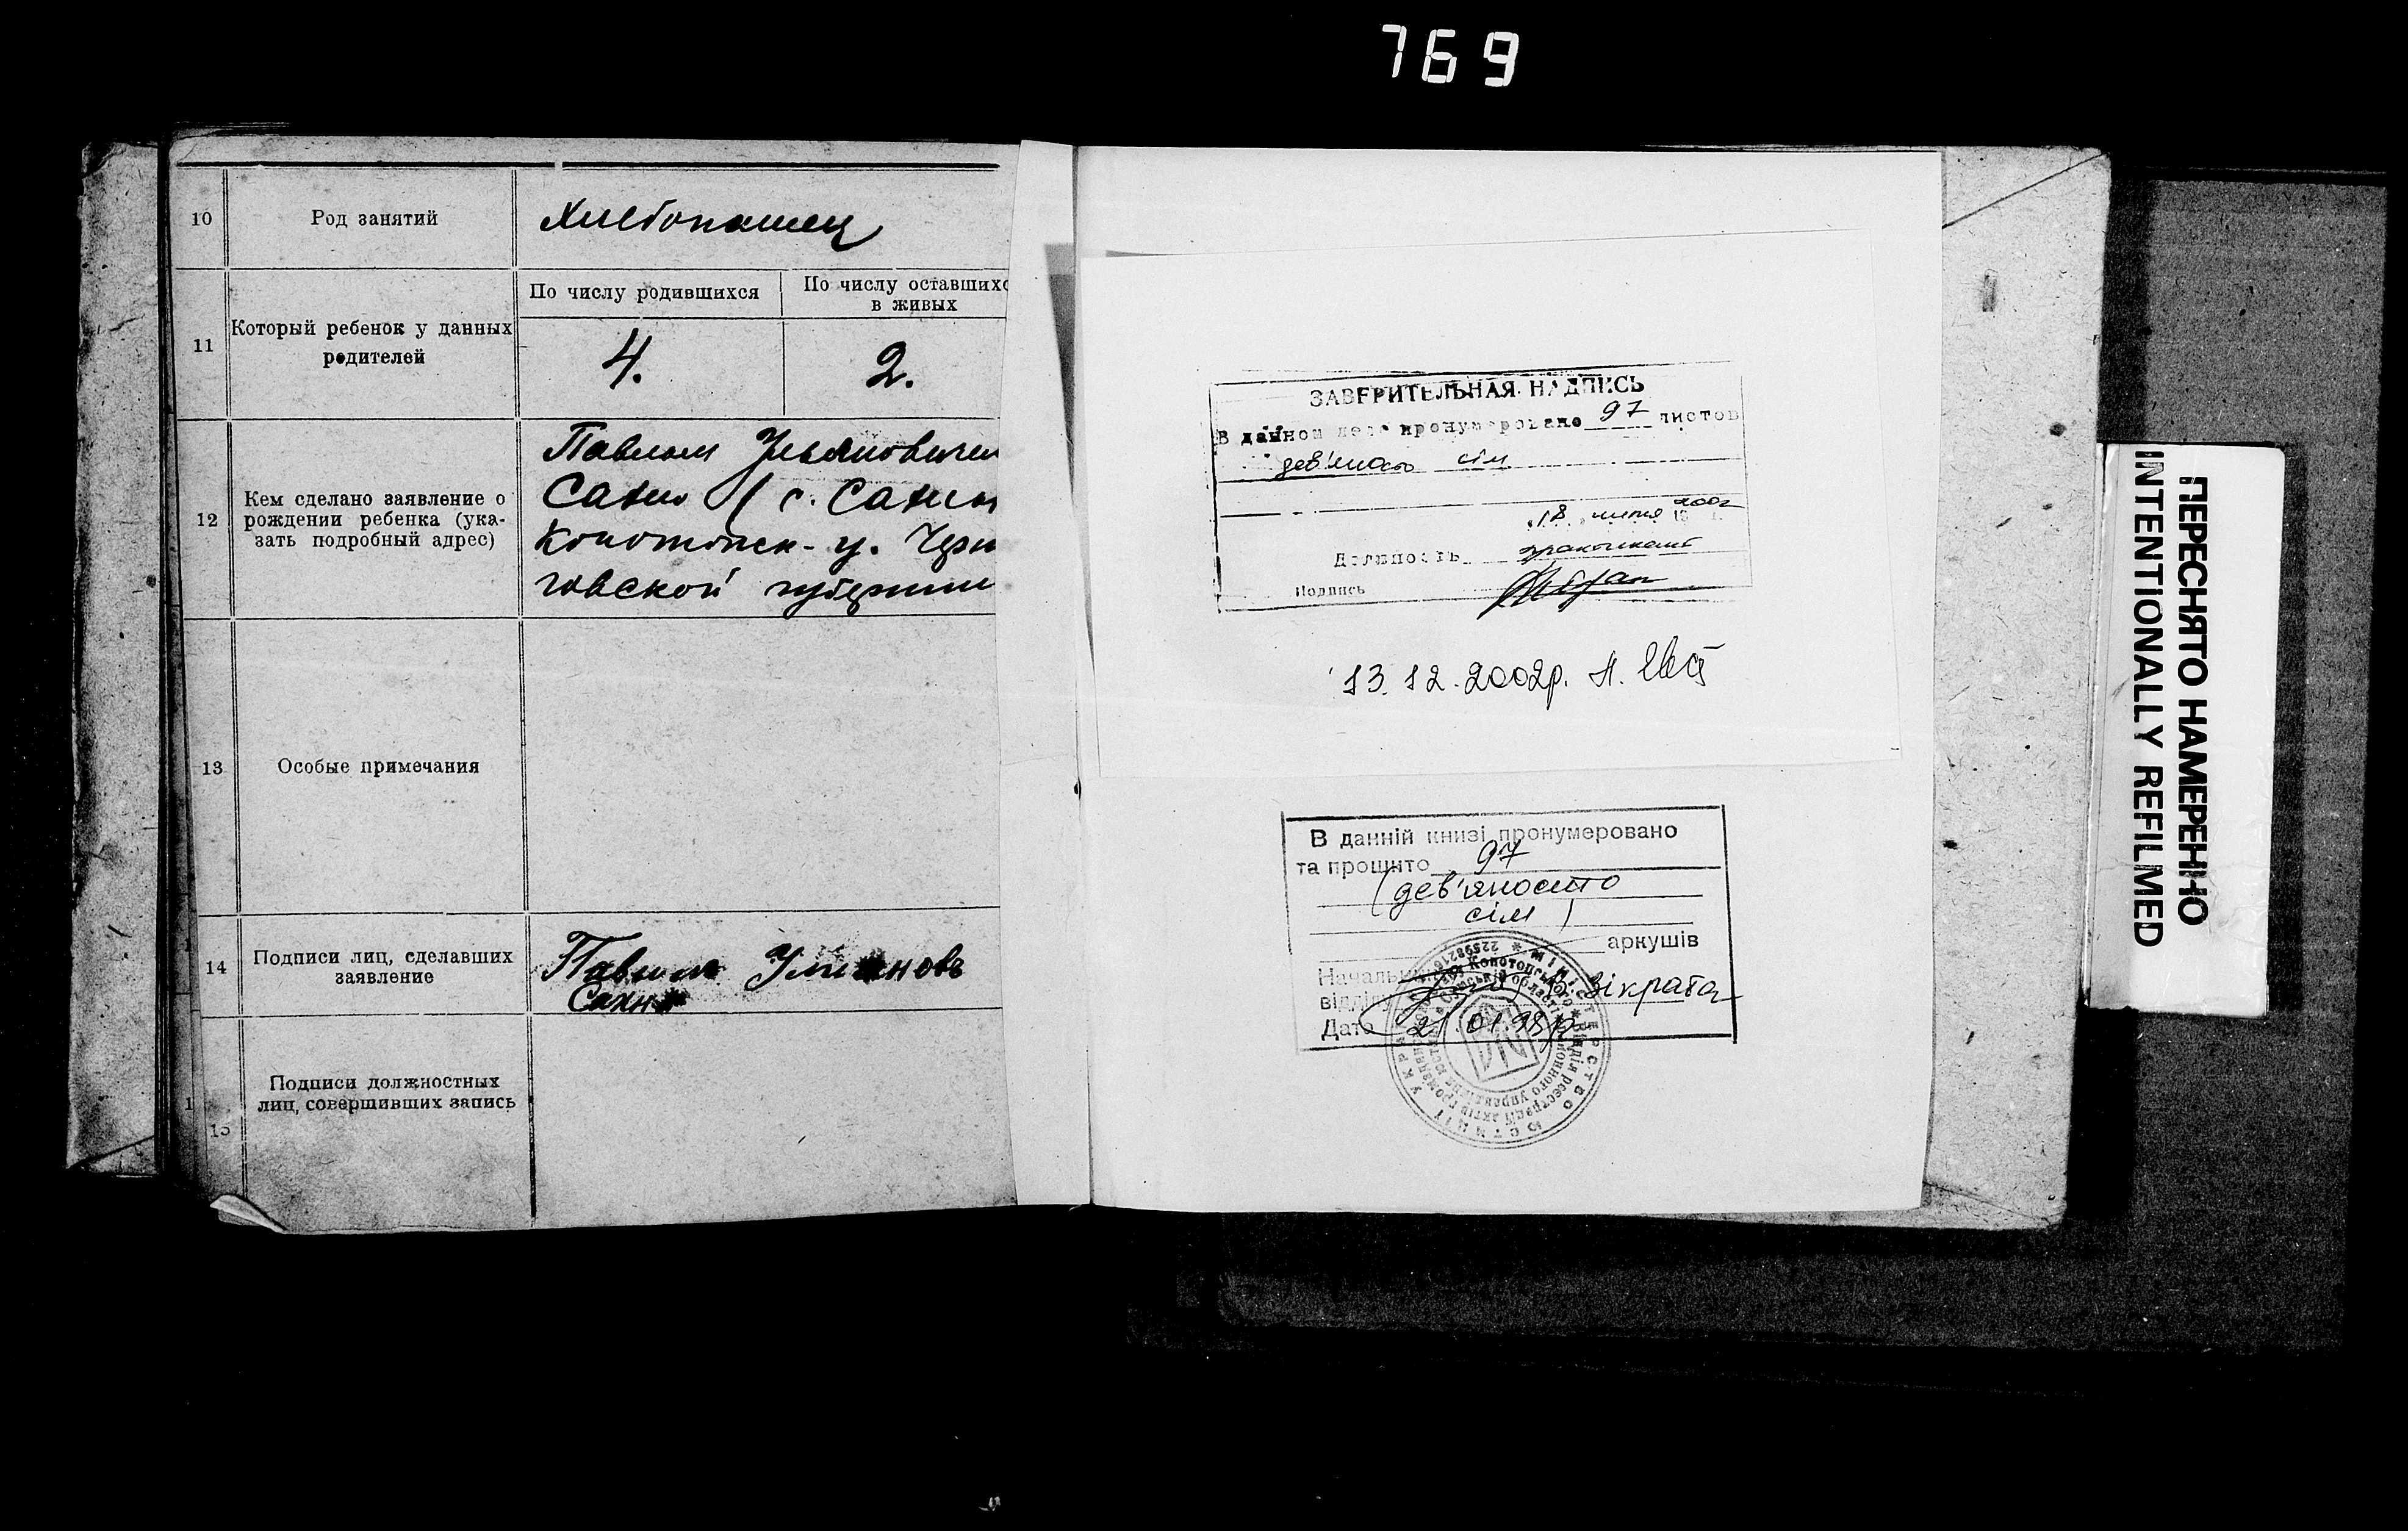 769
10
Род занятий
Хлебопашец
11
Который ребенок у данных
родителей
По числу родившихся
По числу оставшихс
в живых
4.
2.
12
Кем сделано заявление о
рождении ребенка (ука-
зать подробный адрес)
Павлом Ульяновичем
Сахно (с. Сахны
Конотопск- у. Черни
говской губернии
13
Особые примечания
14
Подписи лиц, сделавших
заявление
Павлом
Сахно
15
Подписи должностных
лиц, совершивших запись
ЗАВЕРИТЕЛЬНАЯ НАДПИСЬ
В данном деле пронумеровано 97 листов
дев'яносто сім
18 липня 2002
Должность практикант
Подпись
13.12.2002р.
В данній книзі пронумеровано
та прошито 97
(дев'яносто
сім)
аркушів
Начальник
відділу Зікрата
Дата 21.01.98р.
УКРАЇНА * МІНІСТЕРСТВО ЮСТИЦІЇ
ПЕРЕСНЯТО НАМЕРЕННО
INTENTIONALLY REFILMED